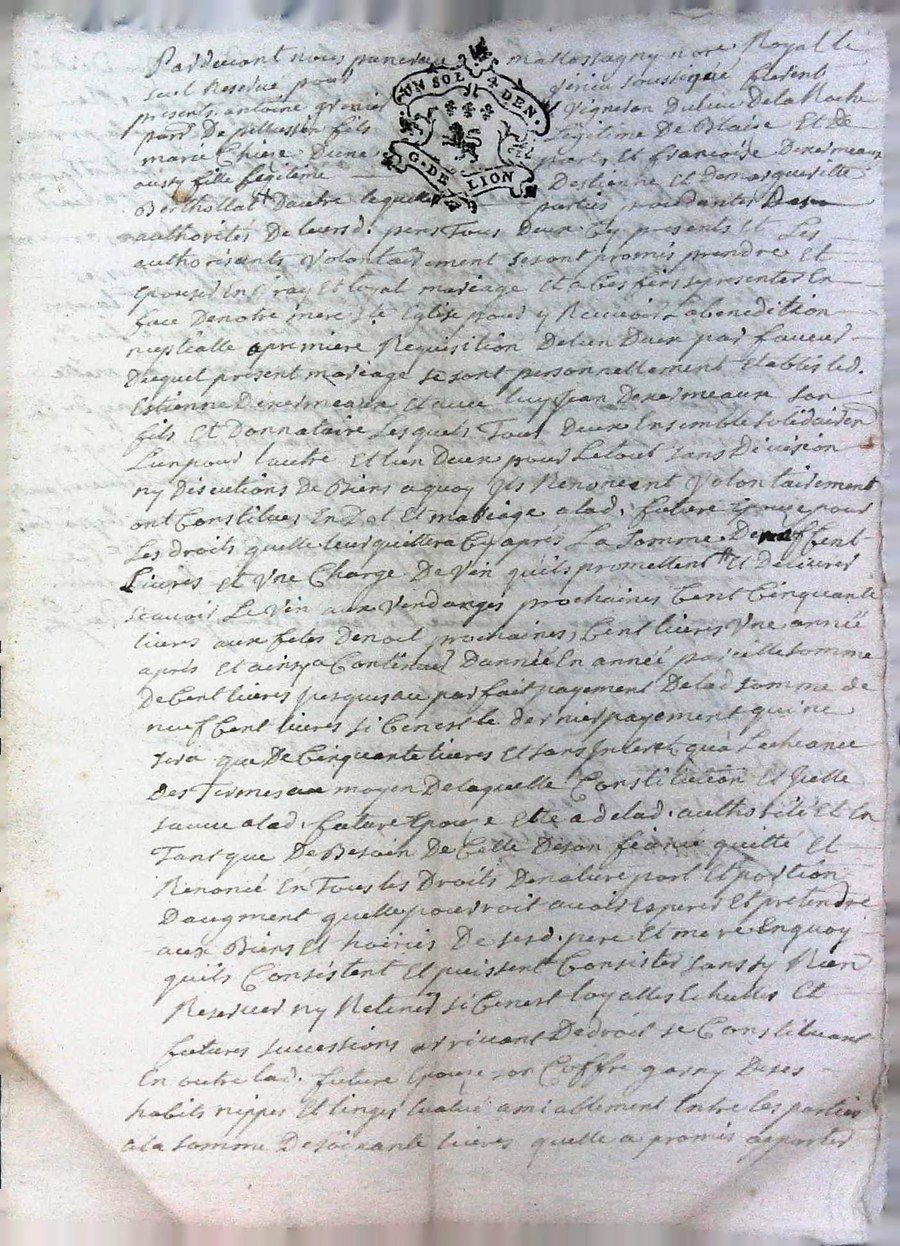 Pardevant nous mallossagny nore Royal le
seel Reserve pour Geniis soussigné furent
presents antoine grenier Vigneron du lieu De la Roche
parr De pelussin fils legitime De Blaise Et de
marie Chieze D'une parts Et francoise Deresmeaux
aussy fille legitime D'estienne Et de margueritte
Berthollat D'autre lequelles parties proceddantes De
authorités De leursd. peres Tous Deux Cy presents Et Les
authorisants Volontairement se sont promis prendre Et
Epouser En vray Et loyal mariage Et a Ces fins se presenter En
face De notre mere ste Eglise pour y Recevoir La benediction
nuptialle a premiere Requisition De lun Deux par faveur
Duquel present mariage se sont personnellement Etablis led.
Estienne Deresmeaux Et avec luy Jean Deresmeaux son
fils Et Donnataire Lesquels Tout Deux Ensemble solidairem
L'un pour l'autre Et l'un Deux pour Le tout sans Division
ny Discutions De Biens a quoy ils Renoncent Volontairement
ont Constitués En Dot Et mariage a lad. future Epouze pour
Les droits quelle leur quittera Cy après La somme De neuf Cent
Livres Et Une Charge De Vin quils promettent Et Delivrer
scavoir Le Vin aux Vendanges prochaines Cent Cinquante
livres aux fetes De noel prochaines, Cent livres Une année
après Et ainsy a Continuer D'année En année parcille somme
De Cent livres jusques au parfait payement De lad somme de
neuf Cent livres si Ce nest le dernier payement qui ne
sera que De Cinquante livres Et sans Interet qu'a L'echeance
Des Termes au moyen De laquelle Constitution Et Icelle
sauve a lad. future Epouze Elle a De lad. authorité Et En
Tant que De Besoin De Celle De son fiancé quitté Et
Renoncé En Tous les Droits De nature part Et portion
D'augment quelle pourroit avoir Esperer Et pretendre
aux Biens Et hoiries De sesd. pere Et mere En quoy
quils Consistent Et puissent Consister sans sy Rien
Reserver ny Retenir si Ce nest loyalles Echuttes Et
futures successions arrivant De droit se Constituant
En outre lad. future Epouze son Coffre garny De ses
habits nippes Et linges Evalué amiablement Entre les parties
a la somme De soixante livres quelle a promis apporter
UN SOL 4 DEN.
G. DE LION